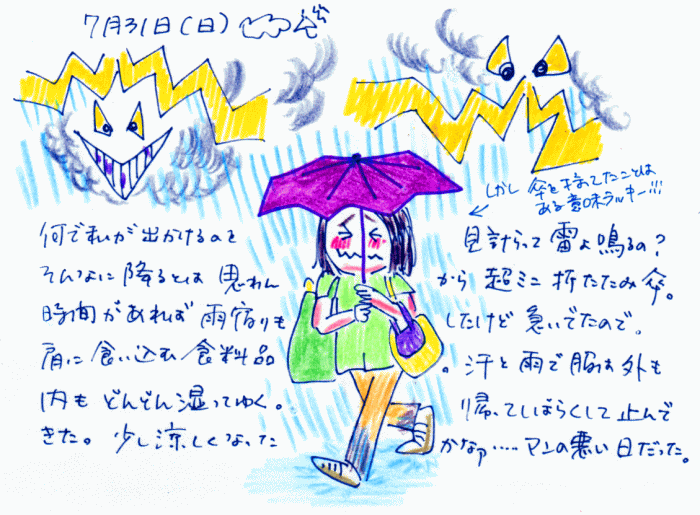 7月31日(日)
しかし 傘を持ってたことは
ある意味ラッキー!!!
何で私が出かけるのを 見計らって雷よ鳴るの?
そんなに降るとは思わん から超ミニ折たたみ傘。
時間があれば雨宿りも したけど急いでたので、
肩に食い込む食料品 。汗と雨で服は外も
内もどんどん湿ってゆく。 帰ってしばらくして止んで
きた。少し涼しくなった かなァ……マンの悪い日だった。